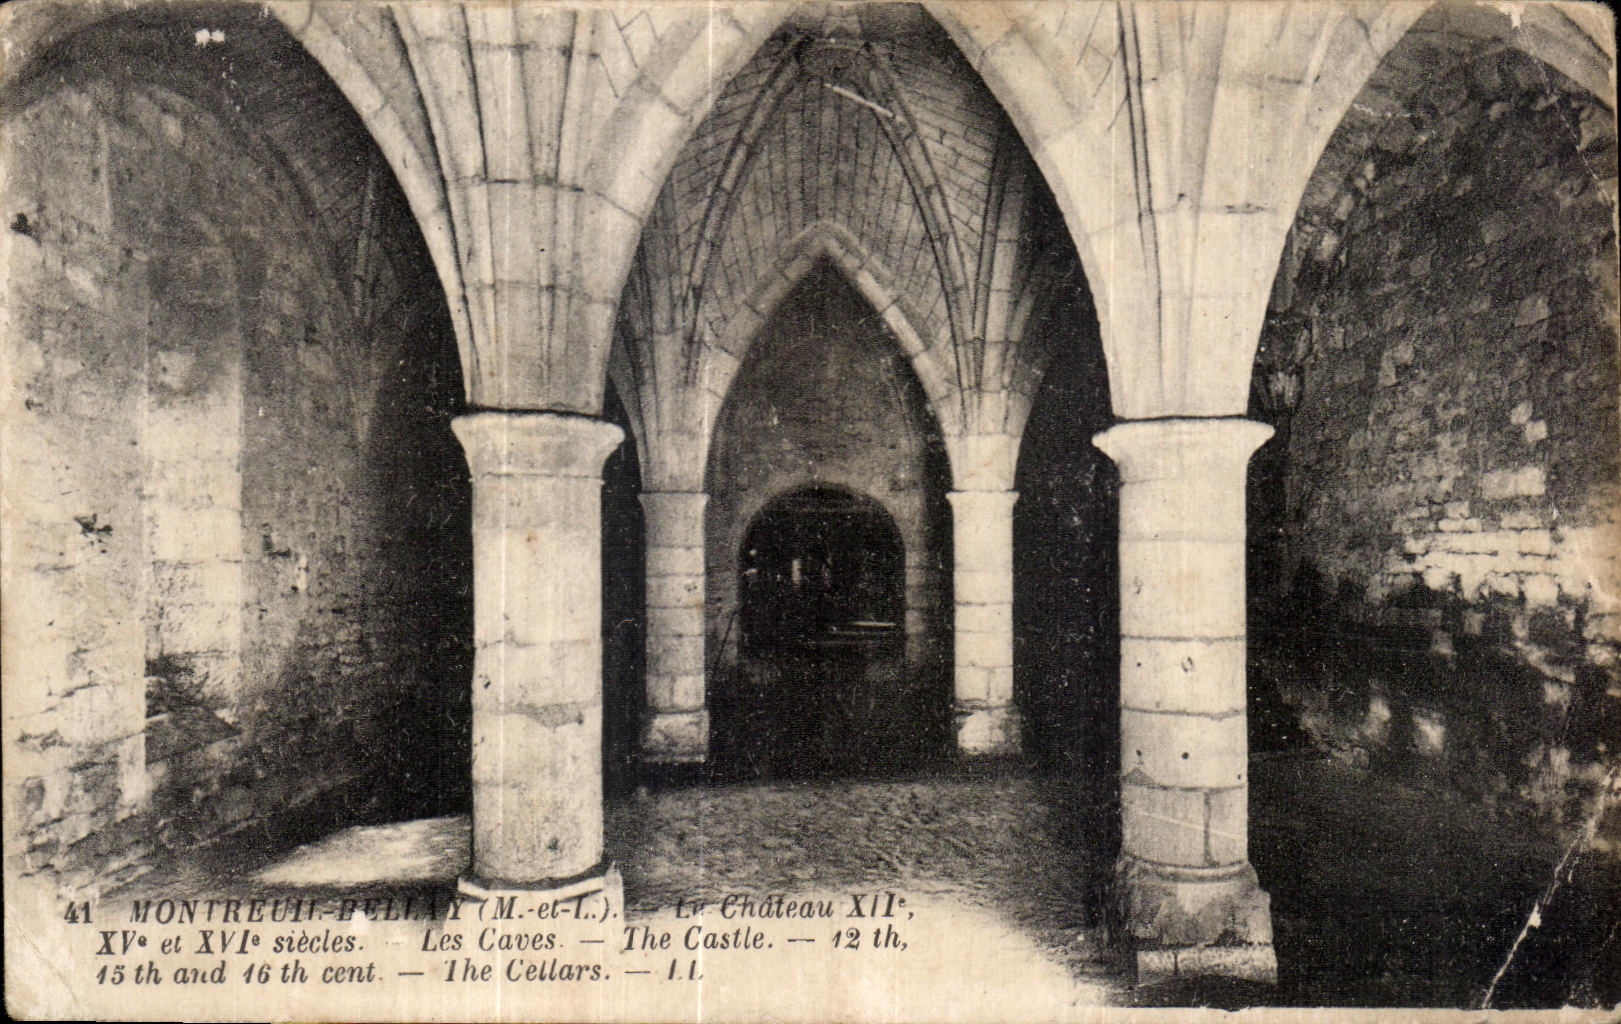 41 MONTREUIL-BELLAY (M.-et-L.). — Le Château XIIe,
XVe et XVIe siècles. — Les Caves. — The Castle. — 12 th,
15 th and 16 th cent. — The Cellars. — LL.